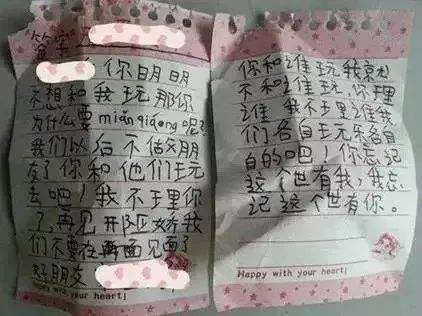 你明明
不想和我玩那你
为什么要miǎnqiǎng呢?
我们以后不做朋
友了你和他们玩
去吧!我不理你
了,再见
我
们不要在再面见面了
好朋友
Happy with your heart;
你和谁玩我就
不和谁玩,你理
谁我不理谁我
们各自玩
各自
的吧!你忘记
这个世有我,我忘
记这个世有你。
Happy with your heart;